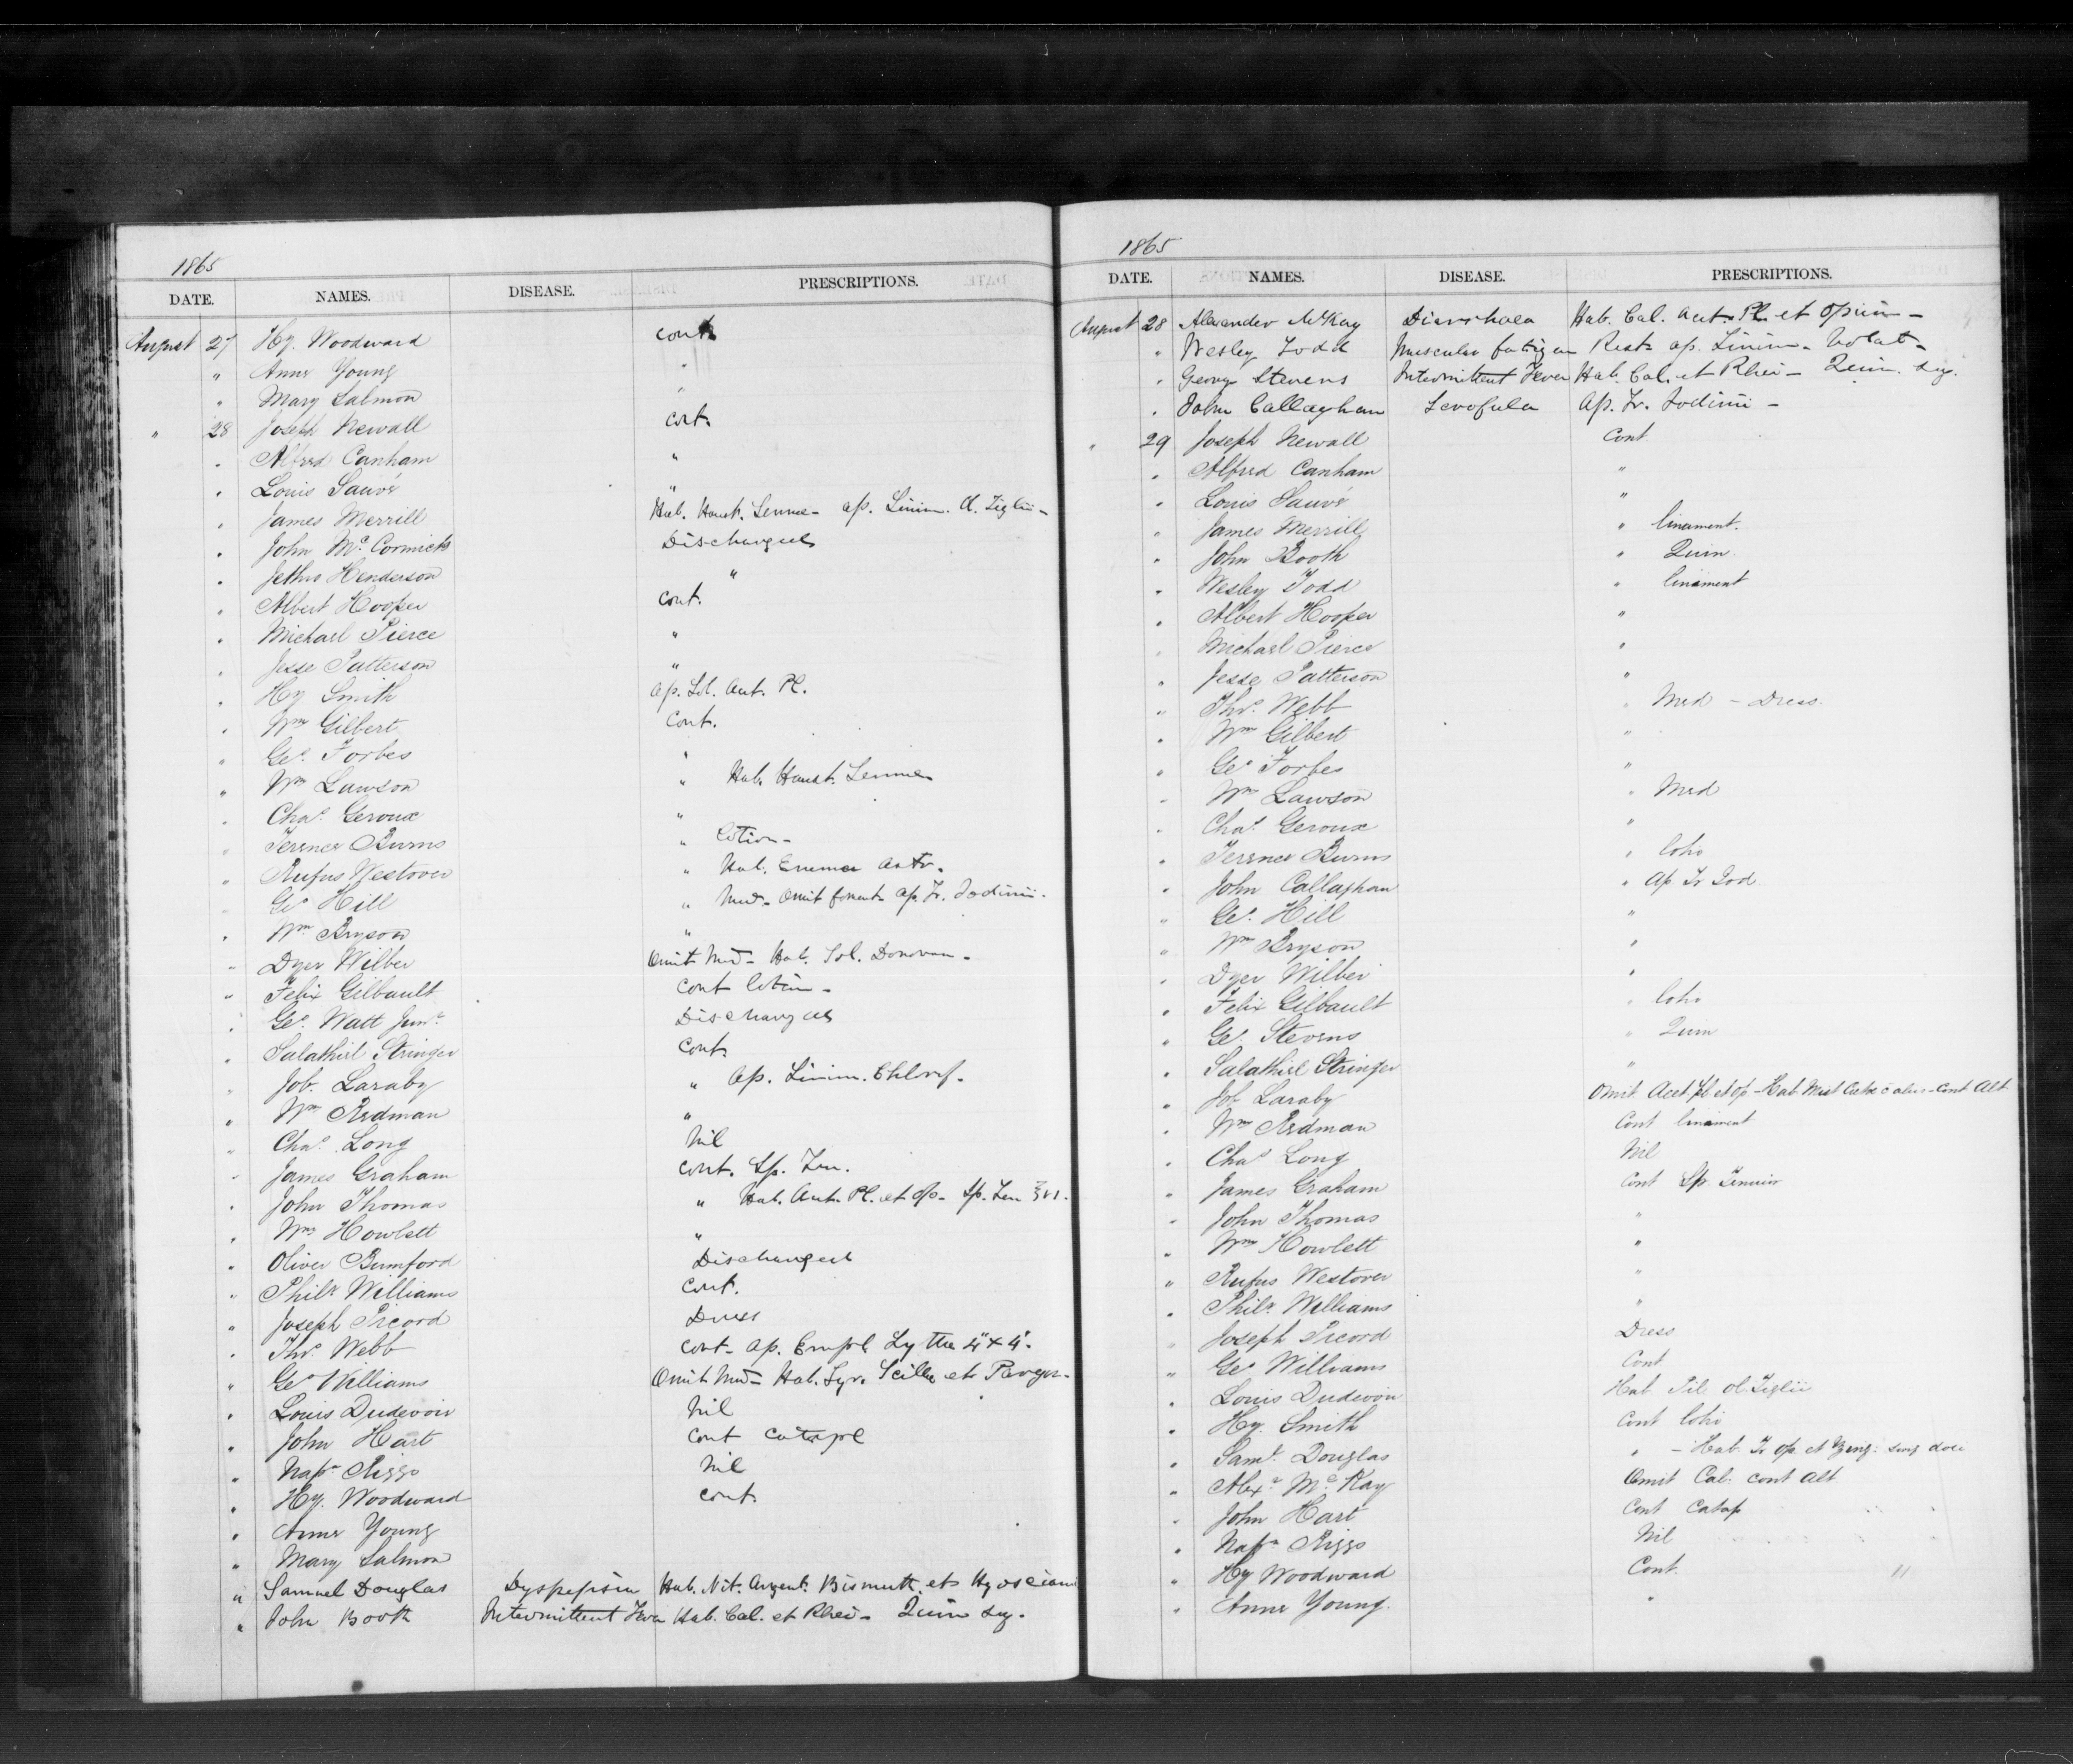 1865
DATE. NAMES. DISEASE. PRESCRIPTIONS.
August 27 Hy. Woodward cont
" Anne Young "
" Mary Salmon "
" 28 Joseph Newall cont.
" Alfred Canham "
" Louis Sauvé "
" James Merrill Hab. Haust. Sennae - ap. Linim. Ol. Tiglii -
" John McCormick Discharged
" Jethro Henderson "
" Albert Hooper cont.
" Michael Pierce "
" Jesse Patterson "
" Hy Smith ap. Sol. Acet. Pl.
" Wm Gilbert Cont.
" Geo. Forbes "
" Wm Lawson " Hab. Haust. Sennae
" Chas. Geroux "
" Terence Burns " lotion -
" Rufus Westover " Hab. Enema
" Geo Hill " Med - Omit foment ap. Tr. Iodinii -
" Wm Bryson "
" Dyer Wilber Omit Med - Hab. Sol. Donovan -
" Felix Gilbault Cont lotion -
" Geo. Watt Junr. Discharged
" Salathiel Stringer Cont.
" Job. Laraby " Ap. Linim. Chlorof.
" Wm Redman "
" Chas. Long Nil
" James Graham Cont. Sp. Ten.
" John Thomas " Hab. Acet. Pl. et Op - Sp. Ten ʒvi.
" Wm Howlett "
" Oliver Bumford Discharged
" Philr Williams Cont.
" Joseph Picord Dress
" Thos. Webb cont - ap. Empl. Lyttae 4" x 4".
" Geo Williams Omit Med - Hab. Syr. Scillae et Paregor -
" Louis Dudevoir Nil
" John Hart Cont Catapl
" Napn Riggs Nil
" Hy. Woodward cont.
" Anne Young
" Mary Salmon
" Samuel Douglas Dyspepsia Hab. Nit. Argent. Bismuth. et Hyosciami
" John Booth Intermittent Fever Hab. Cal. et Rhei - Quin Sig.
1865
DATE. NAMES. DISEASE. PRESCRIPTIONS.
August 28 Alexander McKay Diarrhoea Hab. Cal. Acet. Pl. et Opium -
" Wesley Todd Muscular fatigue Rest ap. Linim - Volat -
" George Stevens Intermittent Fever Hab. Cal. et Rhei - Quin. Sig.
" John Callaghan Scrofula Ap. Tr. Iodinii -
" 29 Joseph Newall Cont.
" Alfred Canham "
" Louis Sauvé "
" James Merrill " linament.
" John Booth " Quin.
" Wesley Todd " linament
" Albert Hooper "
" Michael Pierce "
" Jesse Patterson "
" Thos. Webb " Med - Dress.
" Wm Gilbert "
" Geo Forbes "
" Wm Lawson " Med
" Chas. Geroux "
" Terence Burns " Lotio
" John Callaghan " Ap. Tr Iod
" Geo. Hill "
" Wm Bryson "
" Dyer Wilber "
" Felix Gilbault " Lotio
" Geo. Stevens " Quin
" Salathiel Stringer "
" Job Laraby Omit Acet. Pl et Op - Hab Mist Cretae cont Alt
" Wm Redman Cont linament
" Chas Long Nil
" James Graham Cont Sp. Tenuior
" John Thomas "
" Wm Howlett "
" Rufus Westover "
" Philr. Williams "
" Joseph Picord Dress
" Geo Williams Cont
" Louis Dudevoir Hab Pil ol. Tiglii
" Hy. Smith Cont Lotio
" Saml. Douglas " - Hab Tr Op. et Zing:
" Alexr McKay Omit Cal. cont Alt
" John Hart Cont Catap
" Napn Riggs Nil
" Hy Woodward Cont. "
" Anne Young "